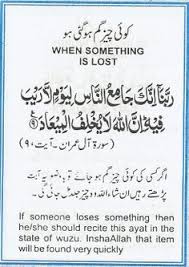 کوئی چیز گم ہوگئی ہو
WHEN SOMETHING
IS LOST
رَبَّنَا إِنَّكَ جَامِعُ النَّاسِ لِيَوْمٍ لَّا رَيْبَ
فِيهِ إِنَّ اللَّهَ لَا يُخْلِفُ الْمِيعَادَ ۹
(سورۃ آل عمران۔ آیت۔۹)
اگر کسی کی کوئی چیز گم ہو جائے تو باوضو، یہ آیت
پڑھتے رہیں ان شاء اللہ وہ چیز جلد مل جائے گی۔
If someone loses something then
he/she should recite this ayat in the
state of wuzu. InshaAllah that item
will be found very quickly